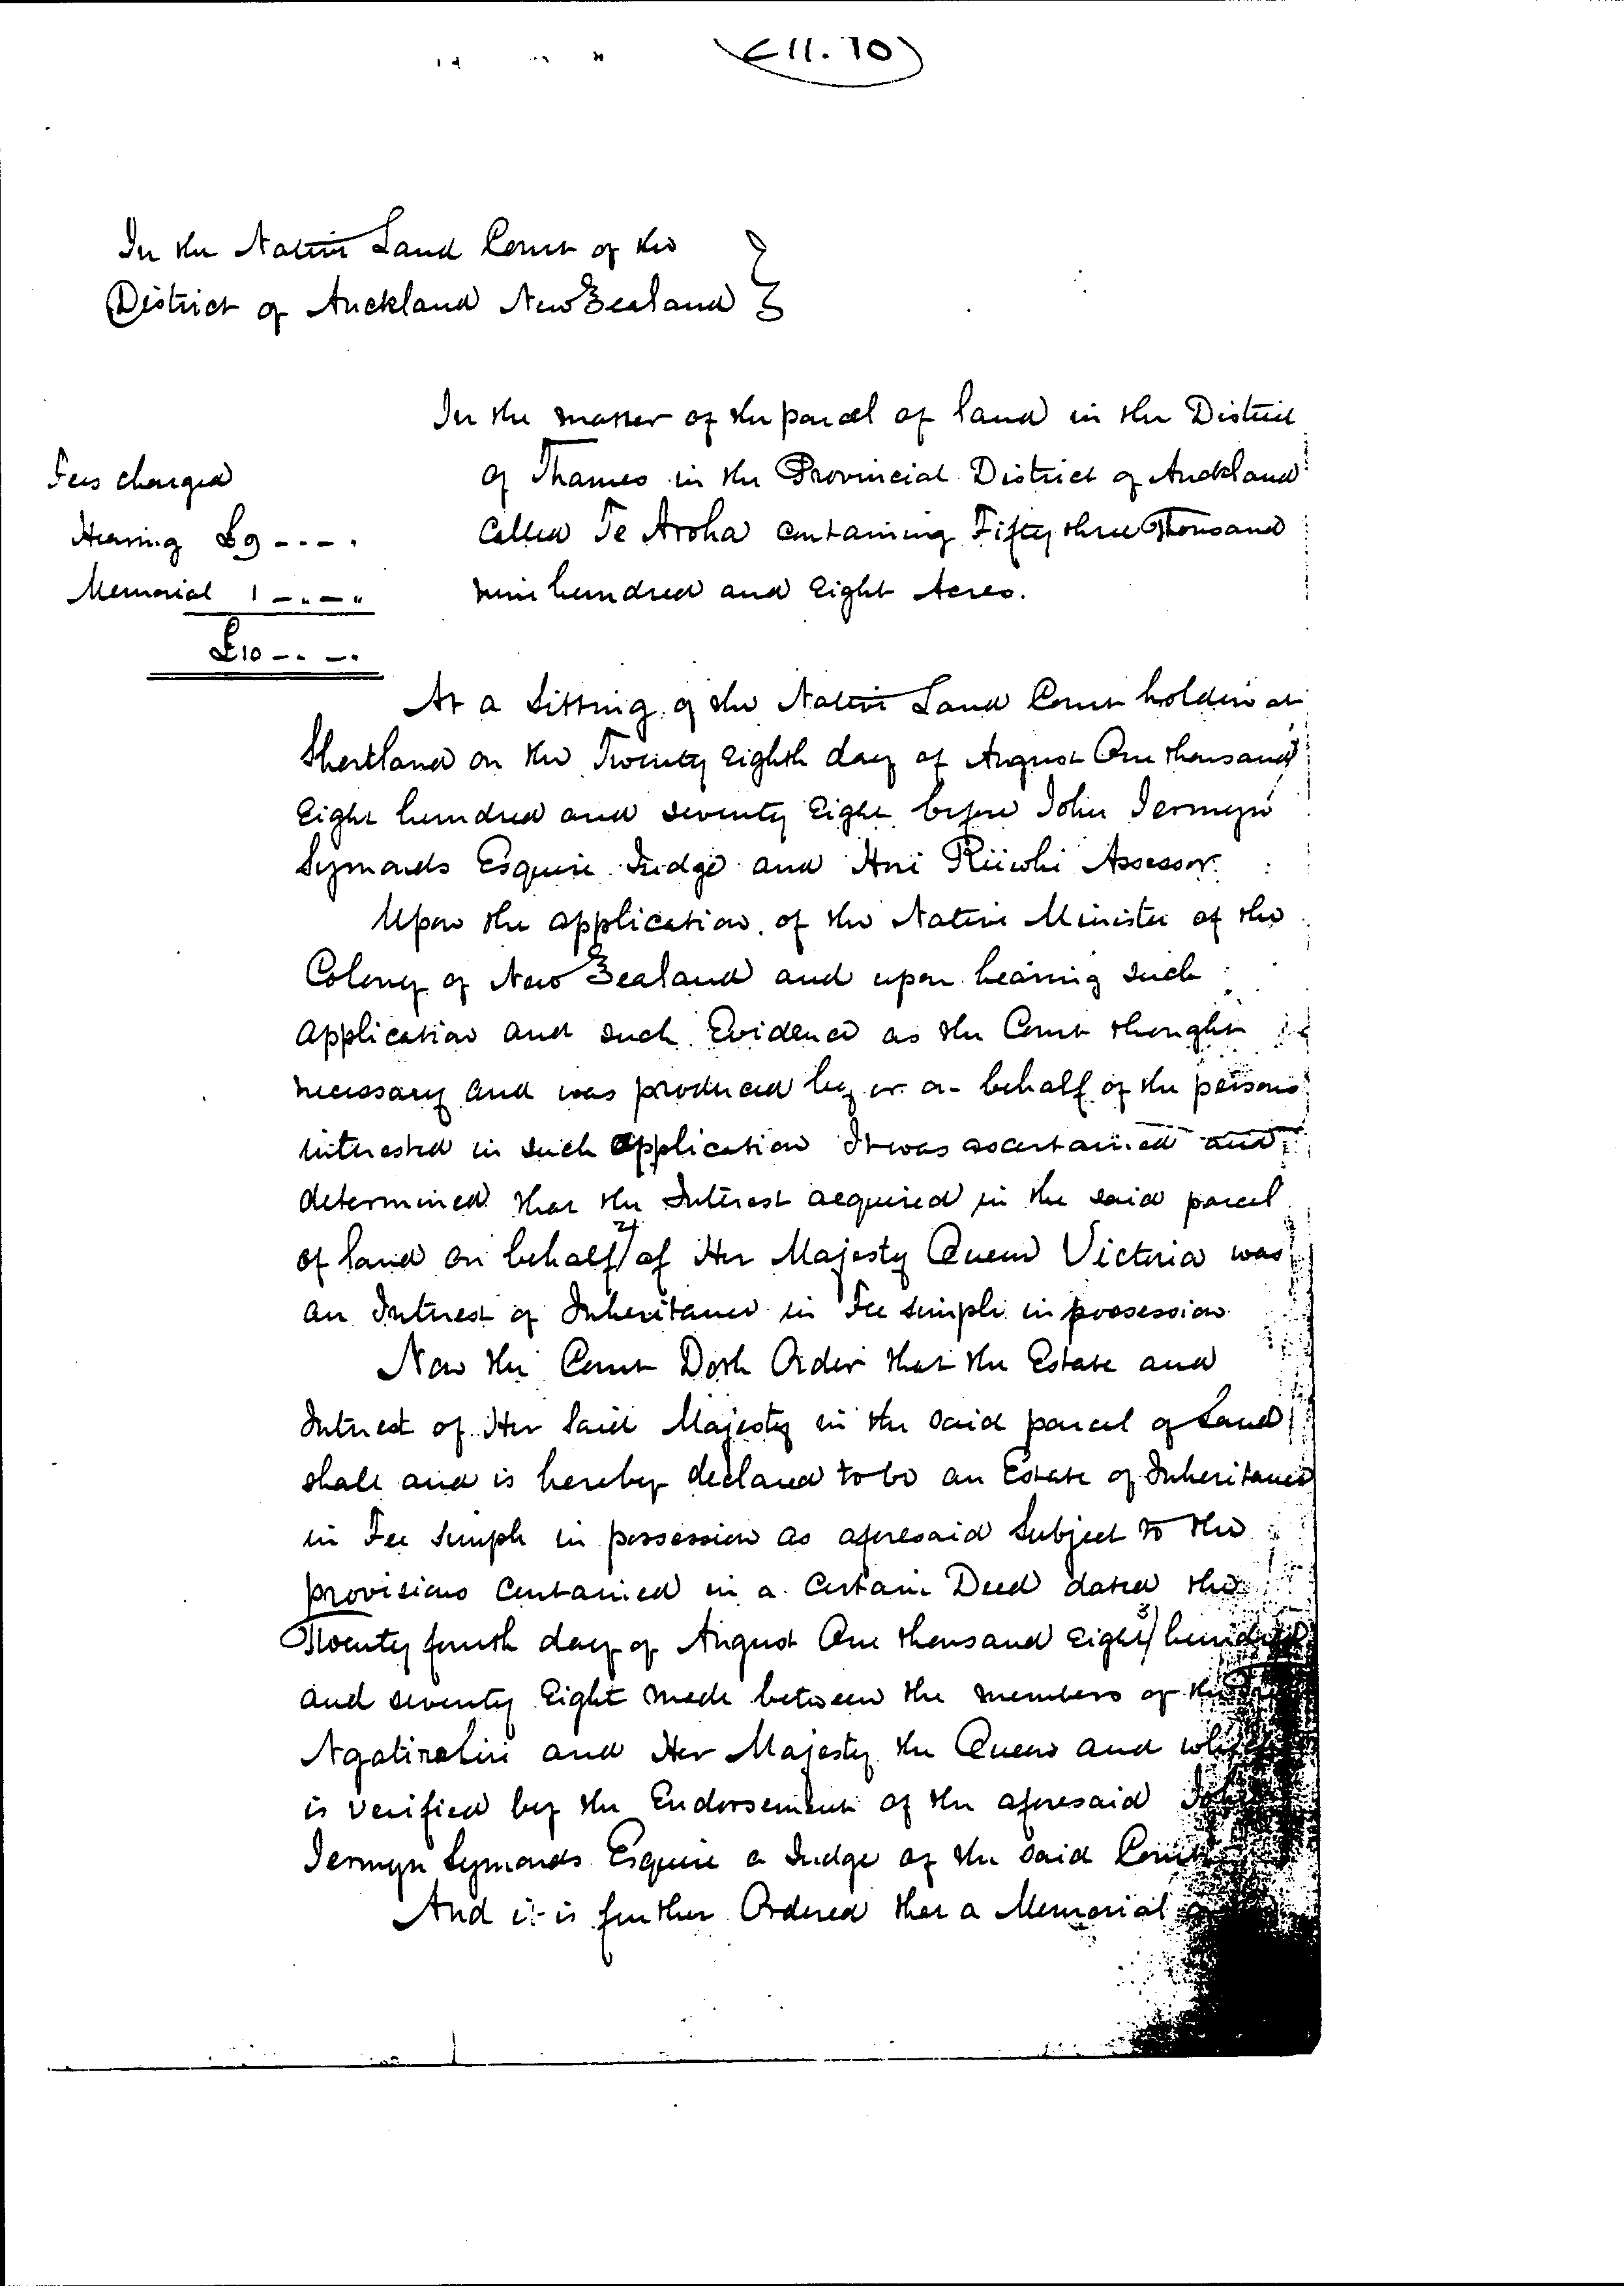 E11. 10
In the Native Land Court of the
District of Auckland New Zealand
In the matter of the parcel of land in the District
of Thames in the Provincial District of Auckland
Called Te Aroha containing Fifty three Thousand
nine hundred and Eight Acres.
Fees charged
Hearing £9 - . - .
Memorial 1 - " - "
£10 - . - .
At a Sitting of the Native Land Court holden at
Shortland on the Twenty Eighth day of August One thousand
Eight hundred and seventy Eight before John Jermyn
Symonds Esquire Judge and Hori Riiwhi Assessor.
Upon the application of the Native Minister of the
Colony of New Zealand and upon hearing such
application and such Evidence as the Court thought
necessary and was produced by or on behalf of the persons
interested in such application It was ascertained and
determined that the Interest acquired in the said parcel
of land on behalf 2/ of Her Majesty Queen Victoria was
an Interest of Inheritance in Fee simple in possession
Now the Court Doth Order that the Estate and
Interest of Her Said Majesty in the said parcel of Land
shall and is hereby declared to be an Estate of Inheritance
in Fee simple in possession as aforesaid Subject to the
provisions contained in a Certain Deed dated the
Twenty fourth day of August One thousand Eight 3/ hundred
and seventy Eight made between the members of the
Ngatirahiri and Her Majesty the Queen and which
is verified by the Endorsement of the aforesaid John
Jermyn Symonds Esquire a Judge of the said Court
And it is further Ordered that a Memorial